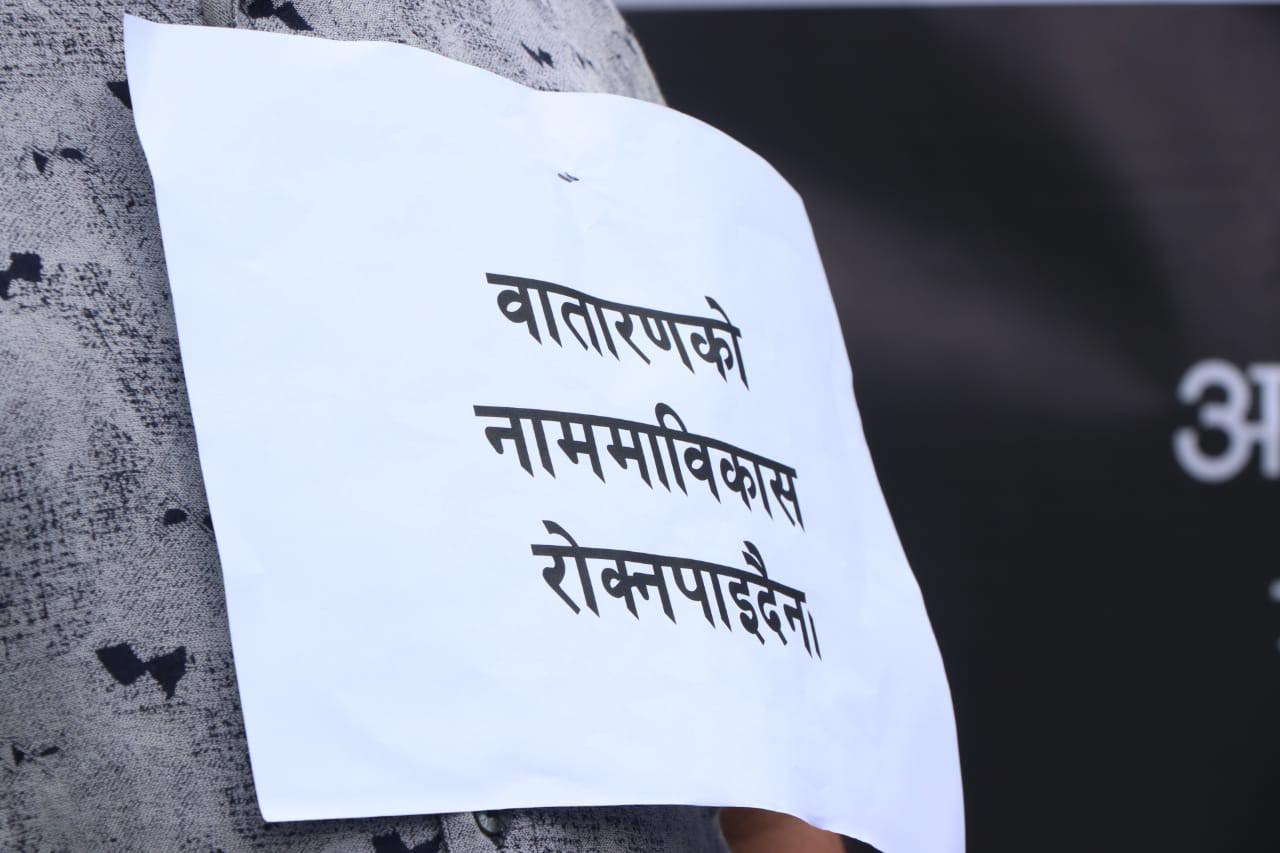 वातारणको
नाममाविकास
रोक्नपाइदैन।
अ